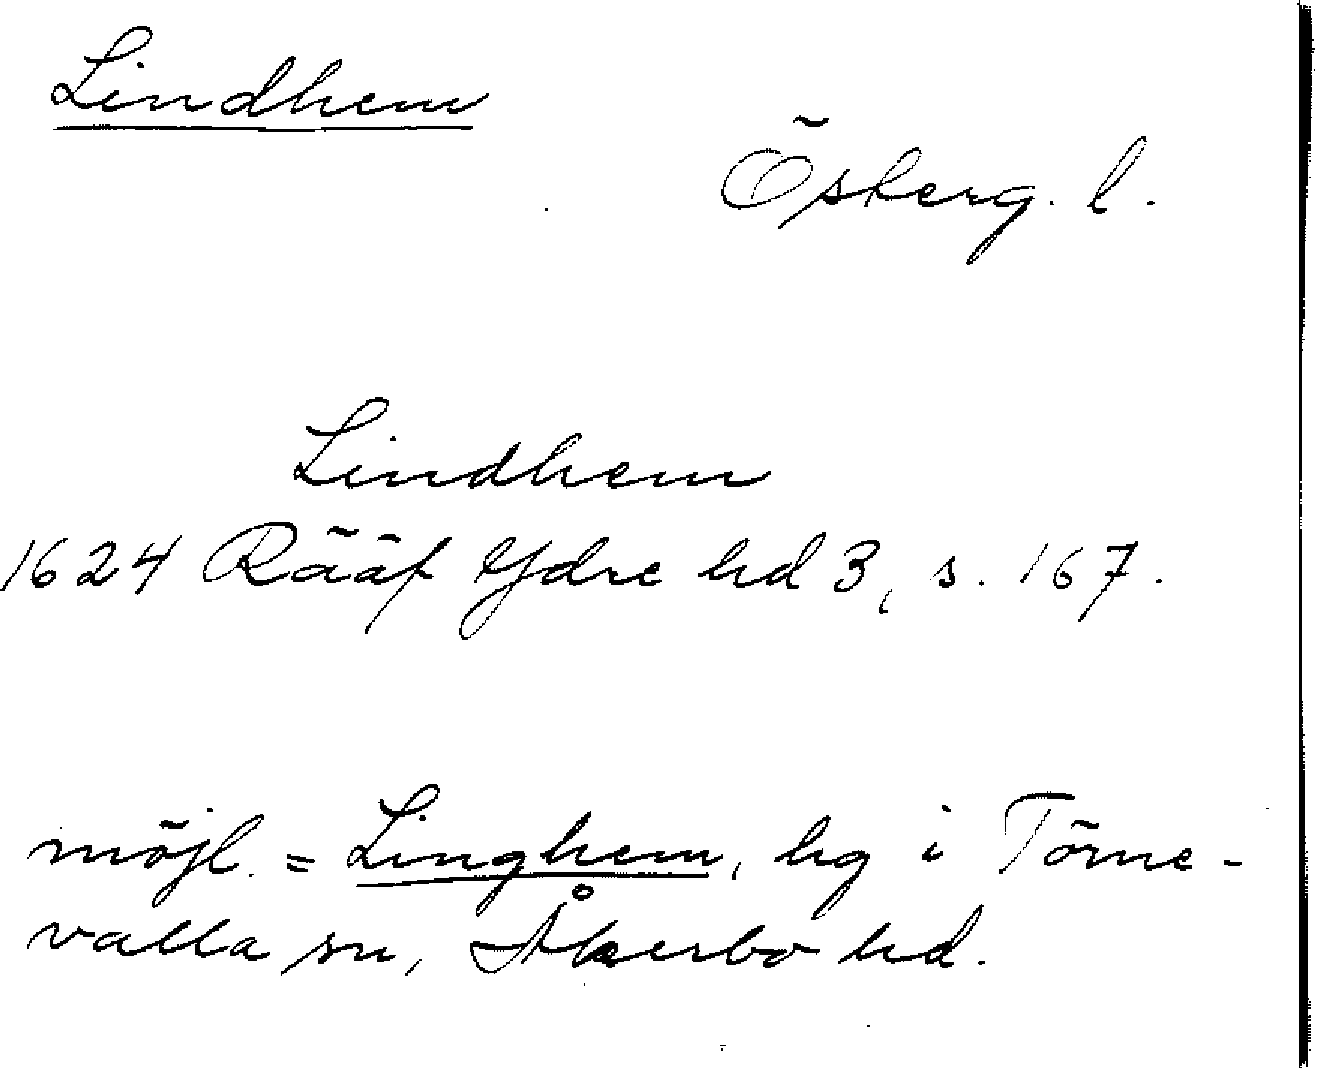 Lindhem
Österg. l.
Lindhem
1624 Rääf Ydre hd 3, s. 167.
möjl. = Linghem, hg i Törne-
valla sn, Åkerbo hd.